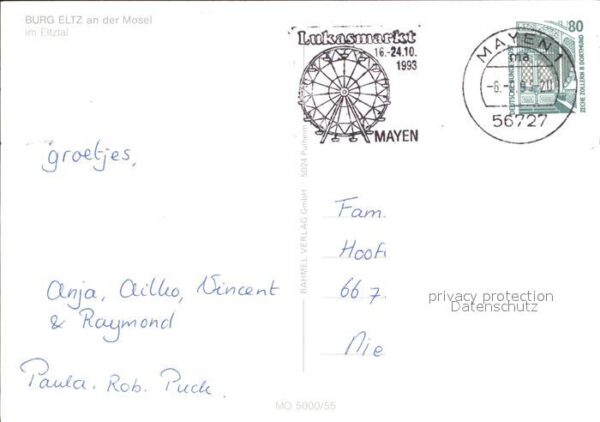 BURG ELTZ an der Mosel
im Eltztal
Lukasmarkt
16.-24.10.
1993
MAYEN
MAYEN 1
ma
56727
80
DEUTSCHE BUNDESPOST
ZECHE ZOLLERN II DORTMUND
groetjes,
Anja, Ailko, Vincent
& Raymond
Paula. Rob. Puck.
RAHMEL VERLAG GmbH 5024 Pulheim
Fam.
Hoof
66 7.
Nie
privacy protection
Datenschutz
MO 5000/55